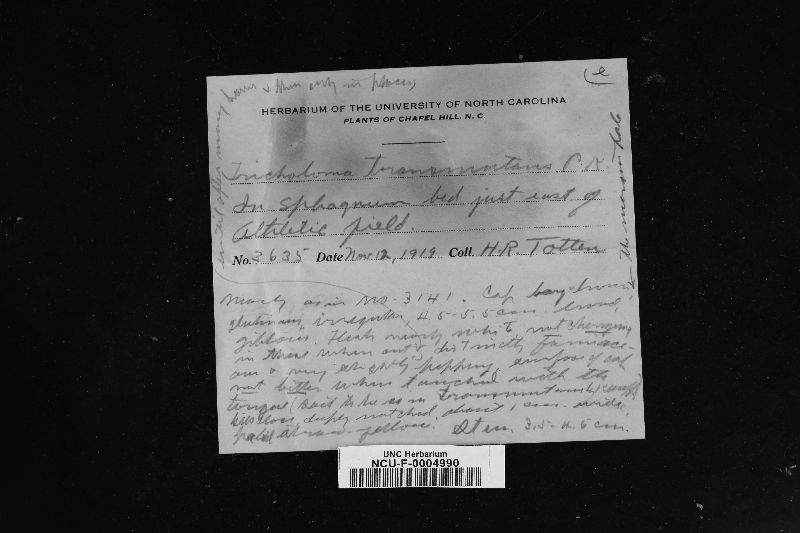 HERBARIUM OF THE UNIVERSITY OF NORTH CAROLINA
PLANTS OF CHAPEL HILL, N. C.
Tricholoma transmutans Pk.
In sphagnum bed just east of
Athletic field.
No. 3635 Date Nov 12, 1919 Coll. H.R. Totten
Nearly as in No. 3141. Cap bay-brown,
glutinous, irregular, 4.5-5.5 cm. broad,
gibbous. Flesh nearly white, not changing
in these when cut & distinctly farinace-
ous & very slightly peppery, surface of cap
not bitter when touched with the
tongue (said to be so in transmutans)
deeply notched, about 1 cm. wide,
pale straw-yellow. Stem 3.5-4.5 cm.
(e
the margin
UNC Herbarium
NCU-F-0004990